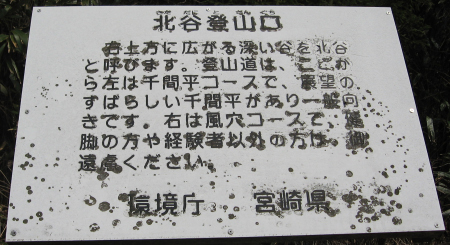 北谷登山口
右上方に広がる深い谷を北谷
と呼びます。登山道は、ここか
ら左は千間平コースで、展望の
すばらしい千間平があり一般向
きです。右は風穴コースで、健
脚の方や経験者以外の方は、御
遠慮ください。
環境庁 宮崎県